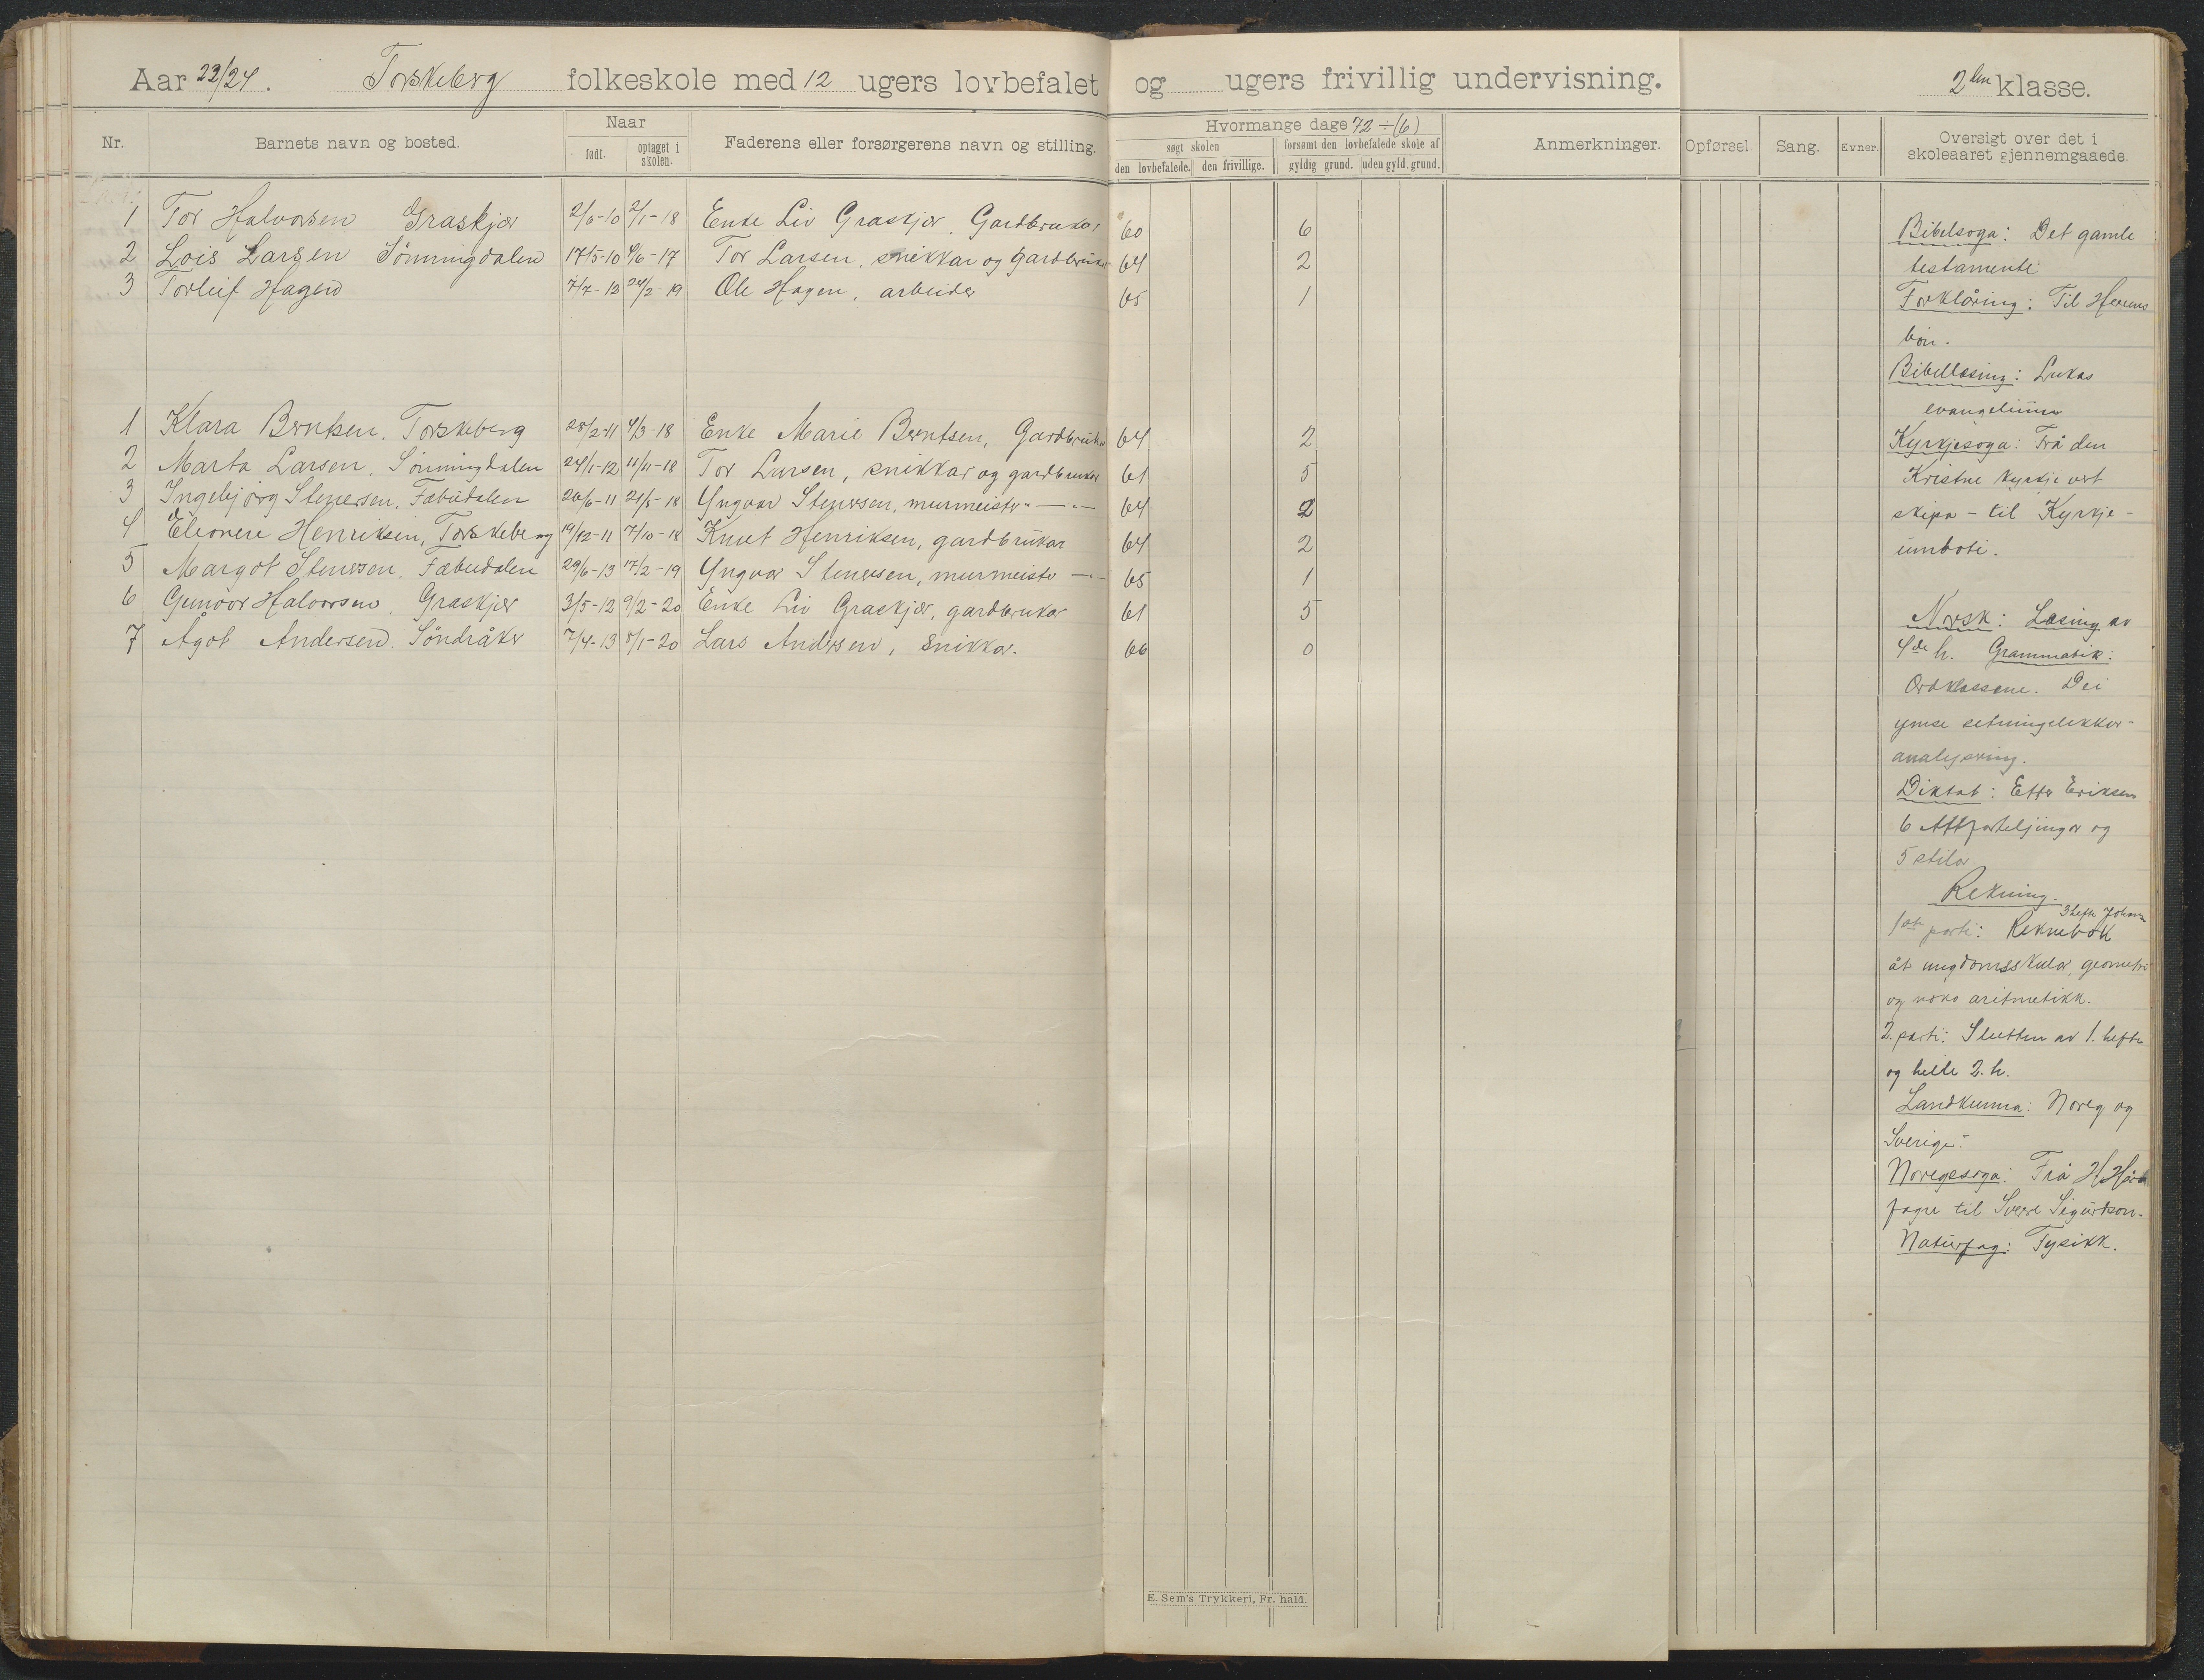 Aar 23/24. Torskeberg folkeskole med 12 ugers lovbefalet og ugers frivillig undervisning. 2den klasse.
Nr. Barnets navn og bosted. Naar født. optaget i skolen. Faderens eller forsørgerens navn og stilling. Hvormange dage 72 ÷ (6) søgt skolen den lovbefalede. den frivillige. forsømt den lovbefalede skole af gyldig grund. uden gyld. grund. Anmerkninger. Opførsel Sang. Evner. Oversigt over det i skoleaaret gjennemgaaede.
1 Tor Halvorsen Graskjær 2/6-10 2/1-18 Enke Liv Graskjær, Gardbrukar 60 6
2 Lois Larsen Sönningdalen 17/5-10 4/6-17 Tor Larsen, snikkar og gardbrukar 64 2
3 Torleif Hagen 7/7-12 24/2-19 Ole Hagen, arbeider 65 1
1 Klara Berntsen, Torskeberg 28/2-11 4/3-18 Enke Marie Berntsen, Gardbrukar 64 2
2 Marta Larsen, Sönningdalen 24/1-12 11/11-18 Tor Larsen, snikkar og gardbrukar 61 5
3 Ingebjörg Stenersen, Fæbudalen 20/6-11 21/5-18 Yngvar Stenersen, murmeister —"— 64 2
4 Eleonere Henriksen, Torskeberg 19/12-11 7/10-18 Knut Henriksen, gardbrukar 64 2
5 Margot Stenersen, Fæbudalen 29/6-13 17/2-19 Yngvar Stenersen, murmeister —"— 65 1
6 Gunvor Halvorsen, Graskjær 3/5-12 9/2-20 Enke Liv Graskjær, gardbrukar 61 5
7 Ågot Andersen. Söndråker 7/4-13 8/1-20 Lars Andersen, Snikkar. 66 0
Bibelsoga: Det gamle
testamente
Forklåring: Til Herrens
bön.
Bibellesing: Lukas
evangelium
Kyrkjesoga: Frå den
Kristne kyrkje vert
skipa - til Kyrkje-
umboti.
Norsk: Lesing av
4de h. Grammatik:
Ordklassene. Dei
ymse setningslekkar-
analysering.
Diktat: Etter Eriksen
6 Attforteljingar og
5 stilar.
Rekning.
3 hefte Johnsen
1ste parti: Reknebok
åt ungdomsskular, geometri
og noko aritmetikk.
2. parti: Slutten av 1. hefte
og heile 2. h.
Landkunna: Noreg og
Sverige.
Noregssoga: Frå H. Hår-
fagre til Sverre Sigurdson.
Naturfag: Fysikk.
E. Sem's Trykkeri, Fr. hald.